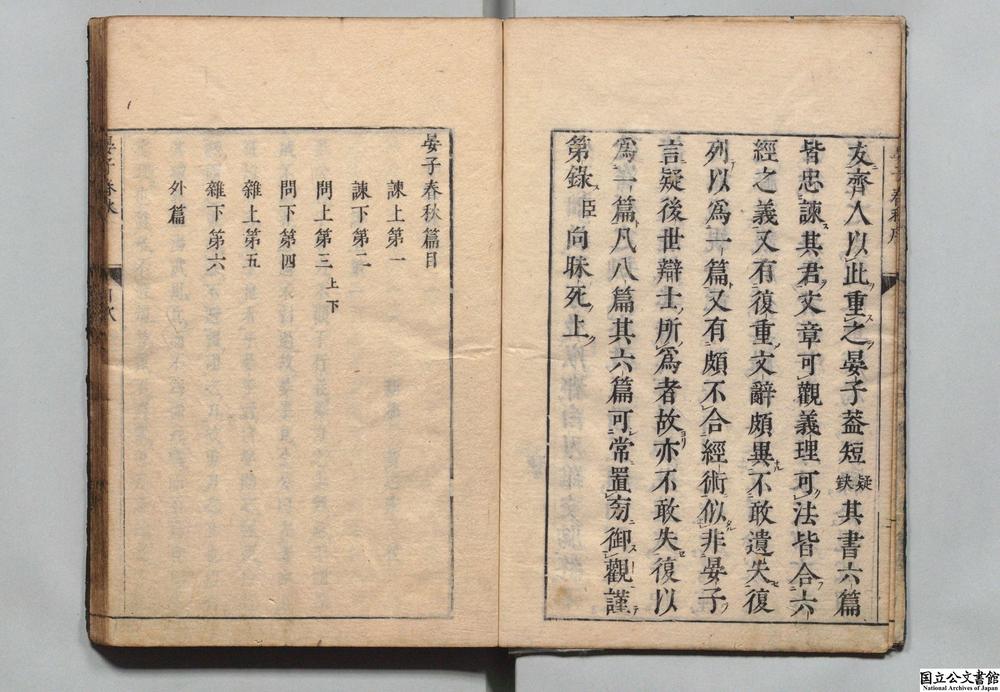 友齊人以此重之晏子葢短疑缺其書六篇
皆忠諫其君文章可觀義理可法皆合六
經之義又有復重文辭頗異不敢遺失復
列以爲一篇又有頗不合經術似非晏子
言疑後世辯士所爲者故亦不敢失復以
爲一篇凡八篇其六篇可常置旁御觀謹
第錄臣向昧死上
晏子春秋篇目
諫上第一
諫下第二
問上第三上下
問下第四
雜上第五
雜下第六
外篇
晏子春秋
目次
国立公文書館
National Archives of Japan